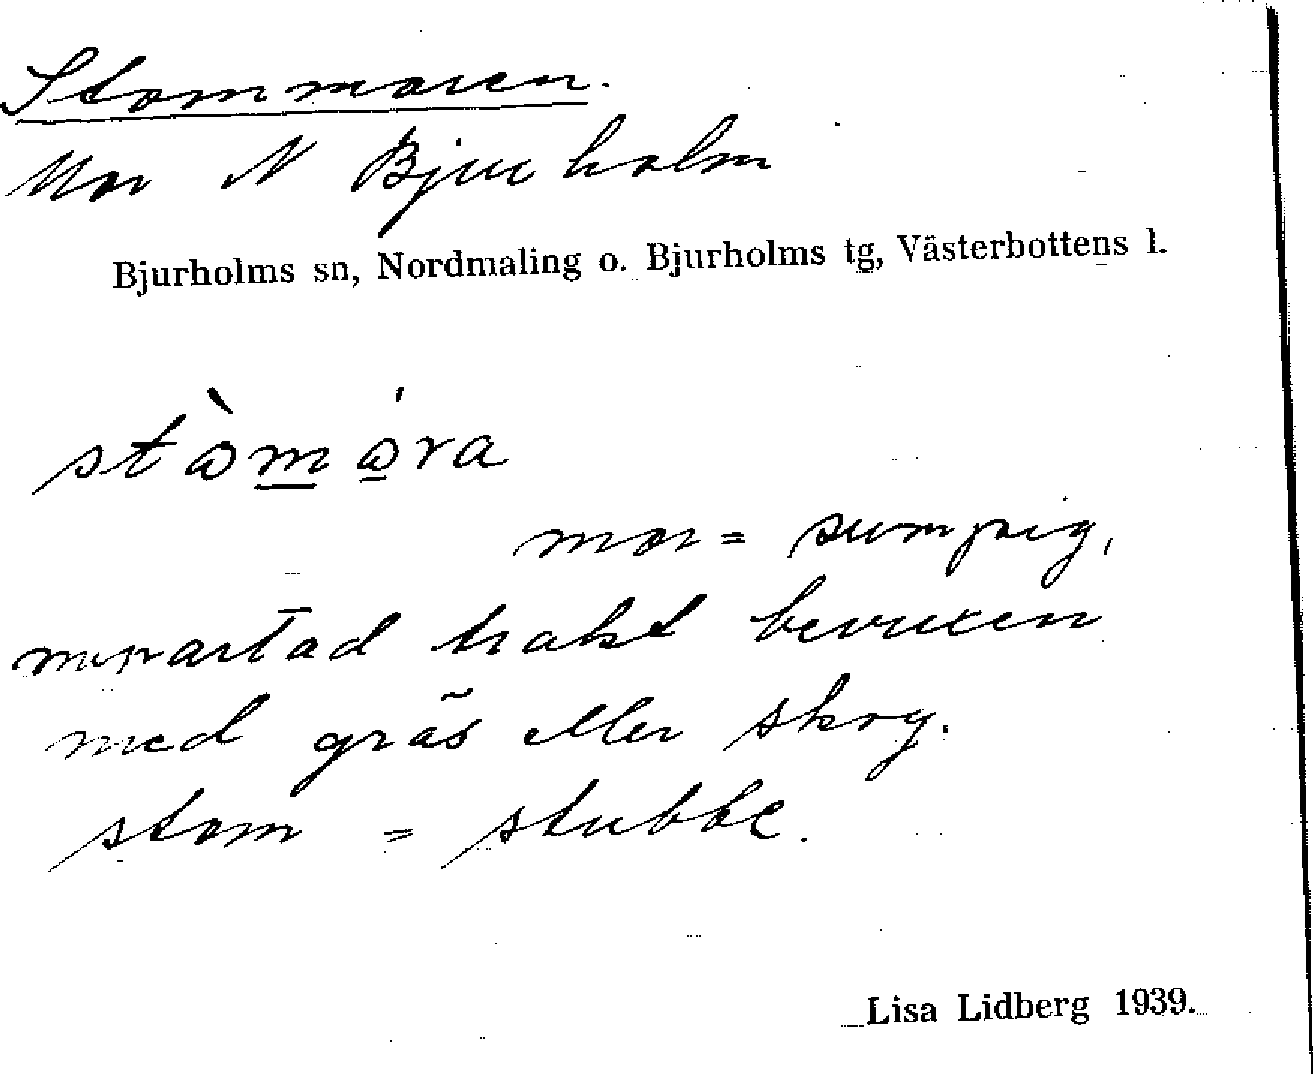 Stommoren.
Mor N Bjurholm
Bjurholms sn, Nordmaling o. Bjurholms tg, Västerbottens l.
stòmóra
mor = sumpig,
myrartad trakt bevuxen
med gräs eller skog.
stom = stubbe.
Lisa Lidberg 1939.